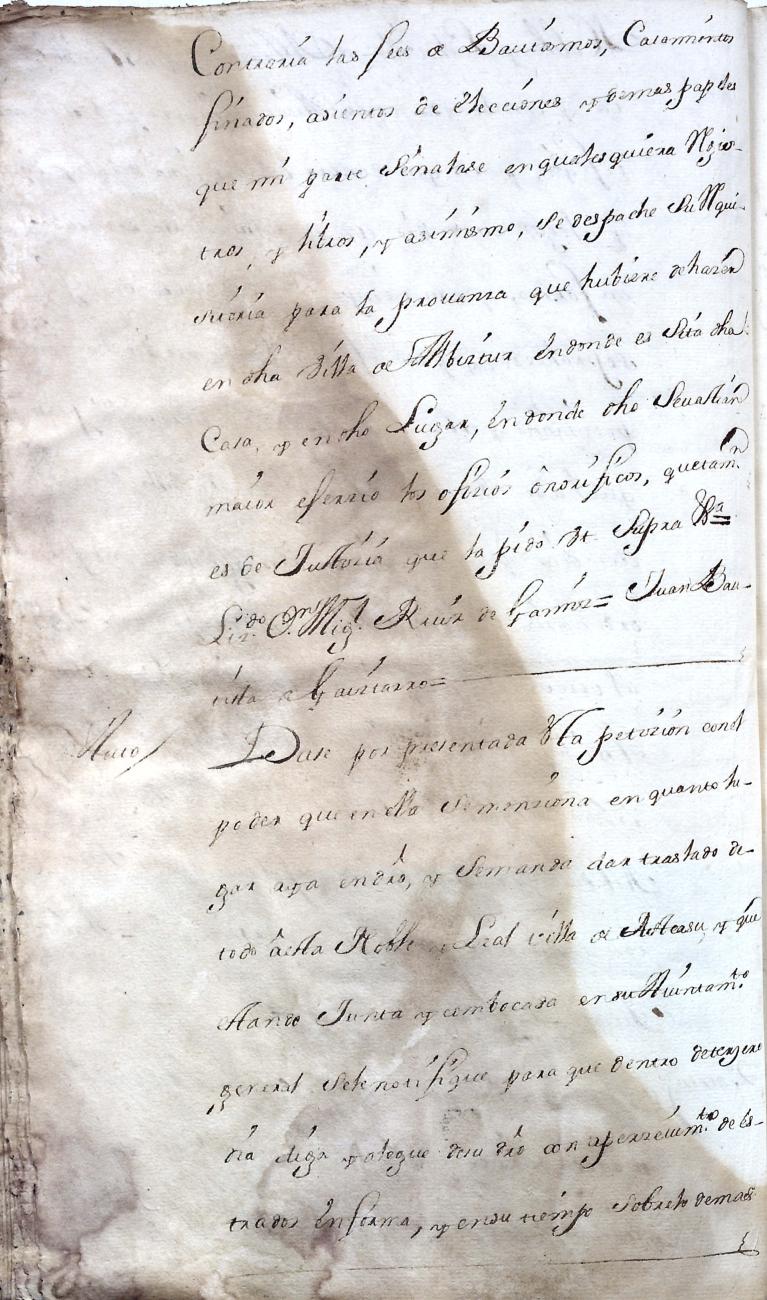 Contraria las fees de Bautismos, Casamientos
finados, asientos de elecciones y demas papeles
que mi parte señalase en qualesquiera Regis-
tros, y libros, y asimismo, se despache su Requi-
sitoria para la provanza que hubiere de hazer
en dha Villa de Albiztur en donde es sita dha
Casa, y en dho Lugar, en donde dho Sevastian
maior exerzio los ofizios onorificos, que tamn
es de Justizia que la pido Ut Supra Va =
Lizdo Dn Migl Ruiz de Gamiz = Juan Bau-
tista de Goizarro =
Auto / Dase por presentada esta petizion con el
poder que en ella se menziona en quanto lu-
gar aya en dro, y se manda dar traslado de
todo a esta Noble y Leal villa de Asteasu, y que
estando Junta y combocada en su Aiuntamto
general se le notifique para que dentro de terzero
dia diga y alegue de su dro con aperzeuimto de es-
trados en forma, y en su tiempo sobre lo demas